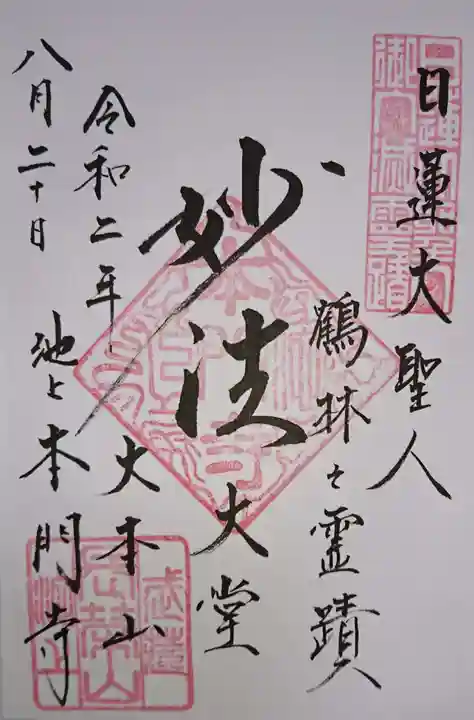 日蓮大聖人
鶴林之霊蹟
妙法
大堂
令和二年 大本山
八月二十日 池上本門寺